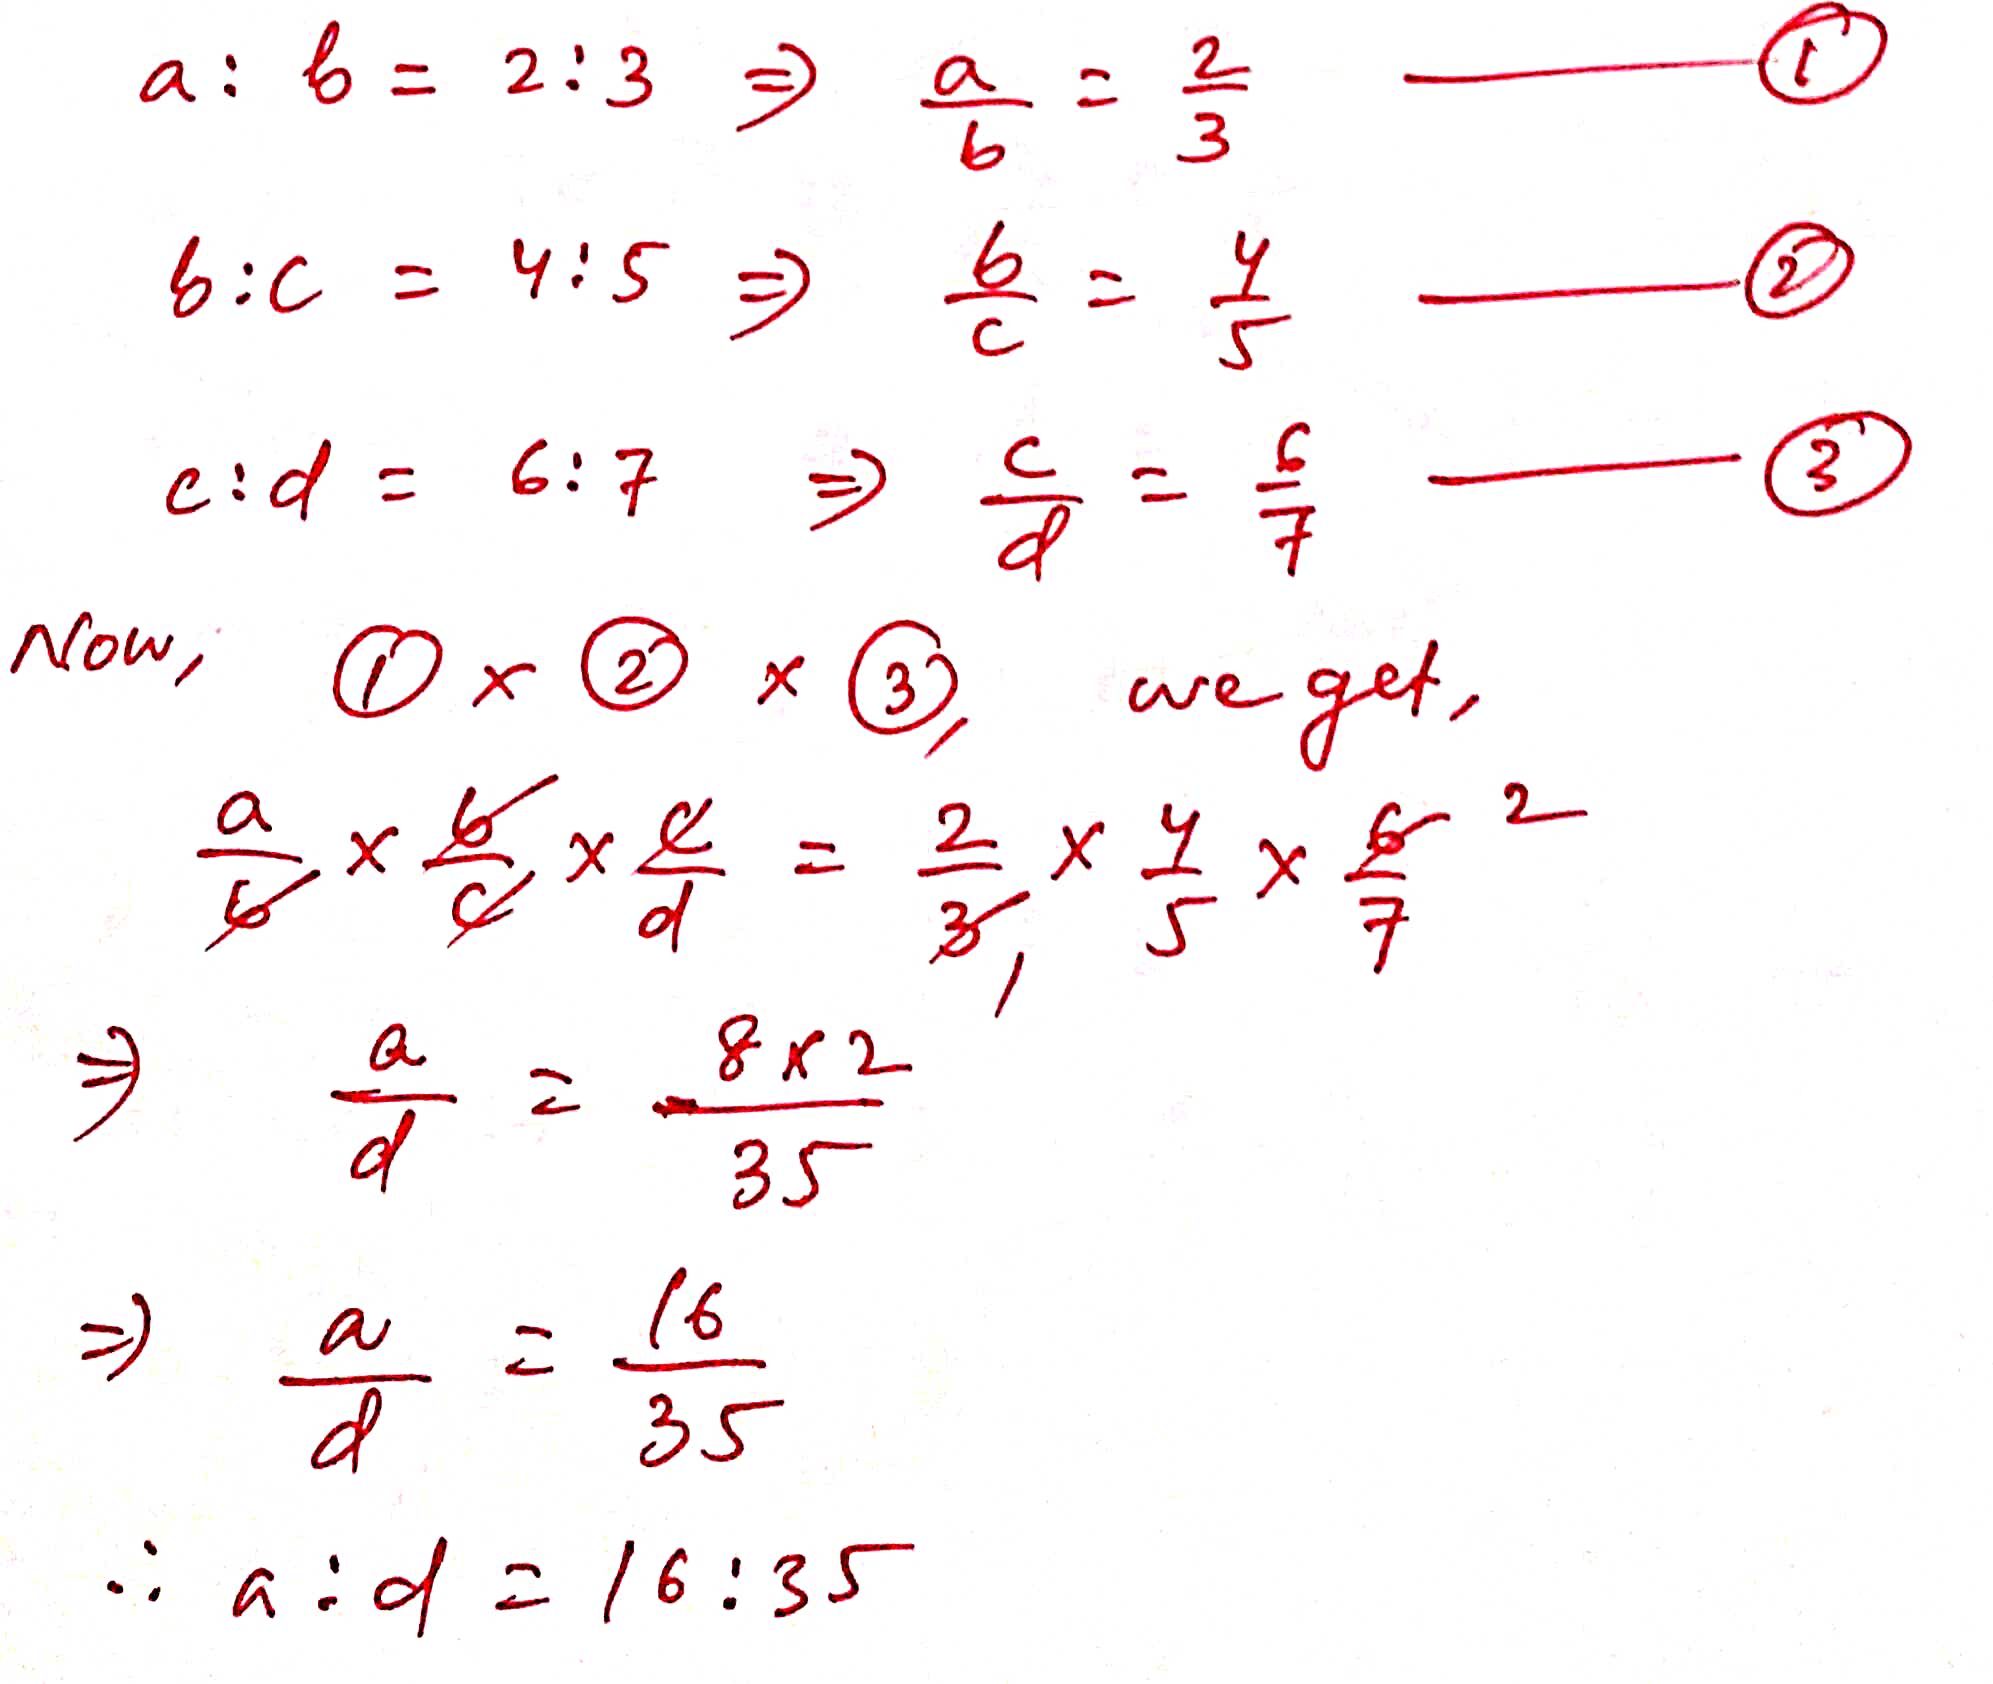 a : b = 2 : 3 ⇒ a/b = 2/3 ——— ①
b : c = 4 : 5 ⇒ b/c = 4/5 ——— ②
c : d = 6 : 7 ⇒ c/d = 6/7 ——— ③
Now, ① × ② × ③, we get,
a/b × b/c × c/d = 2/3 1 × 4/5 × 6/7 2
⇒ a/d = 8 × 2/35
⇒ a/d = 16/35
∴ a : d = 16 : 35